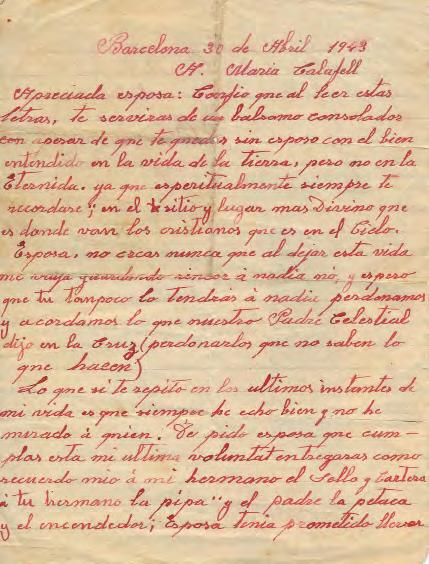 Barcelona 30 de Abril 1943
A. Maria Calafell
Apreciada esposa: Confio que al leer estas
letras, te serviras de un balsamo consolador
con apesar de que te quedas sin esposo con el bien
entendido en la vida de la tierra, pero no en la
Eternida. ya que esperitualmente siempre te
recordare; en el sitio y lugar mas Divino que
es donde van los cristianos que es en el Cielo.
Esposa, no creas nunca que al dejar esta vida
me vaya guardando rincor á nadia nó, y espero
que tu tampoco lo tendrás á nadie perdonamos
y acordamos lo que nuestro Padre Celestial
dijo en la Cruz (perdonarlos que no saben lo
que hacen)
Lo que si te repito en los ultimos instantes de
mi vida es que siempre he echo bien y no he
mirado á quien. Te pido esposa que cum-
plas esta mi ultima voluntat entregaras como
recuerdo mio á mi hermano el Sello y Cartera
á tu hermano la pipa" y el padre la petaca
y el encendedor; Esposa tenia prometido llevar